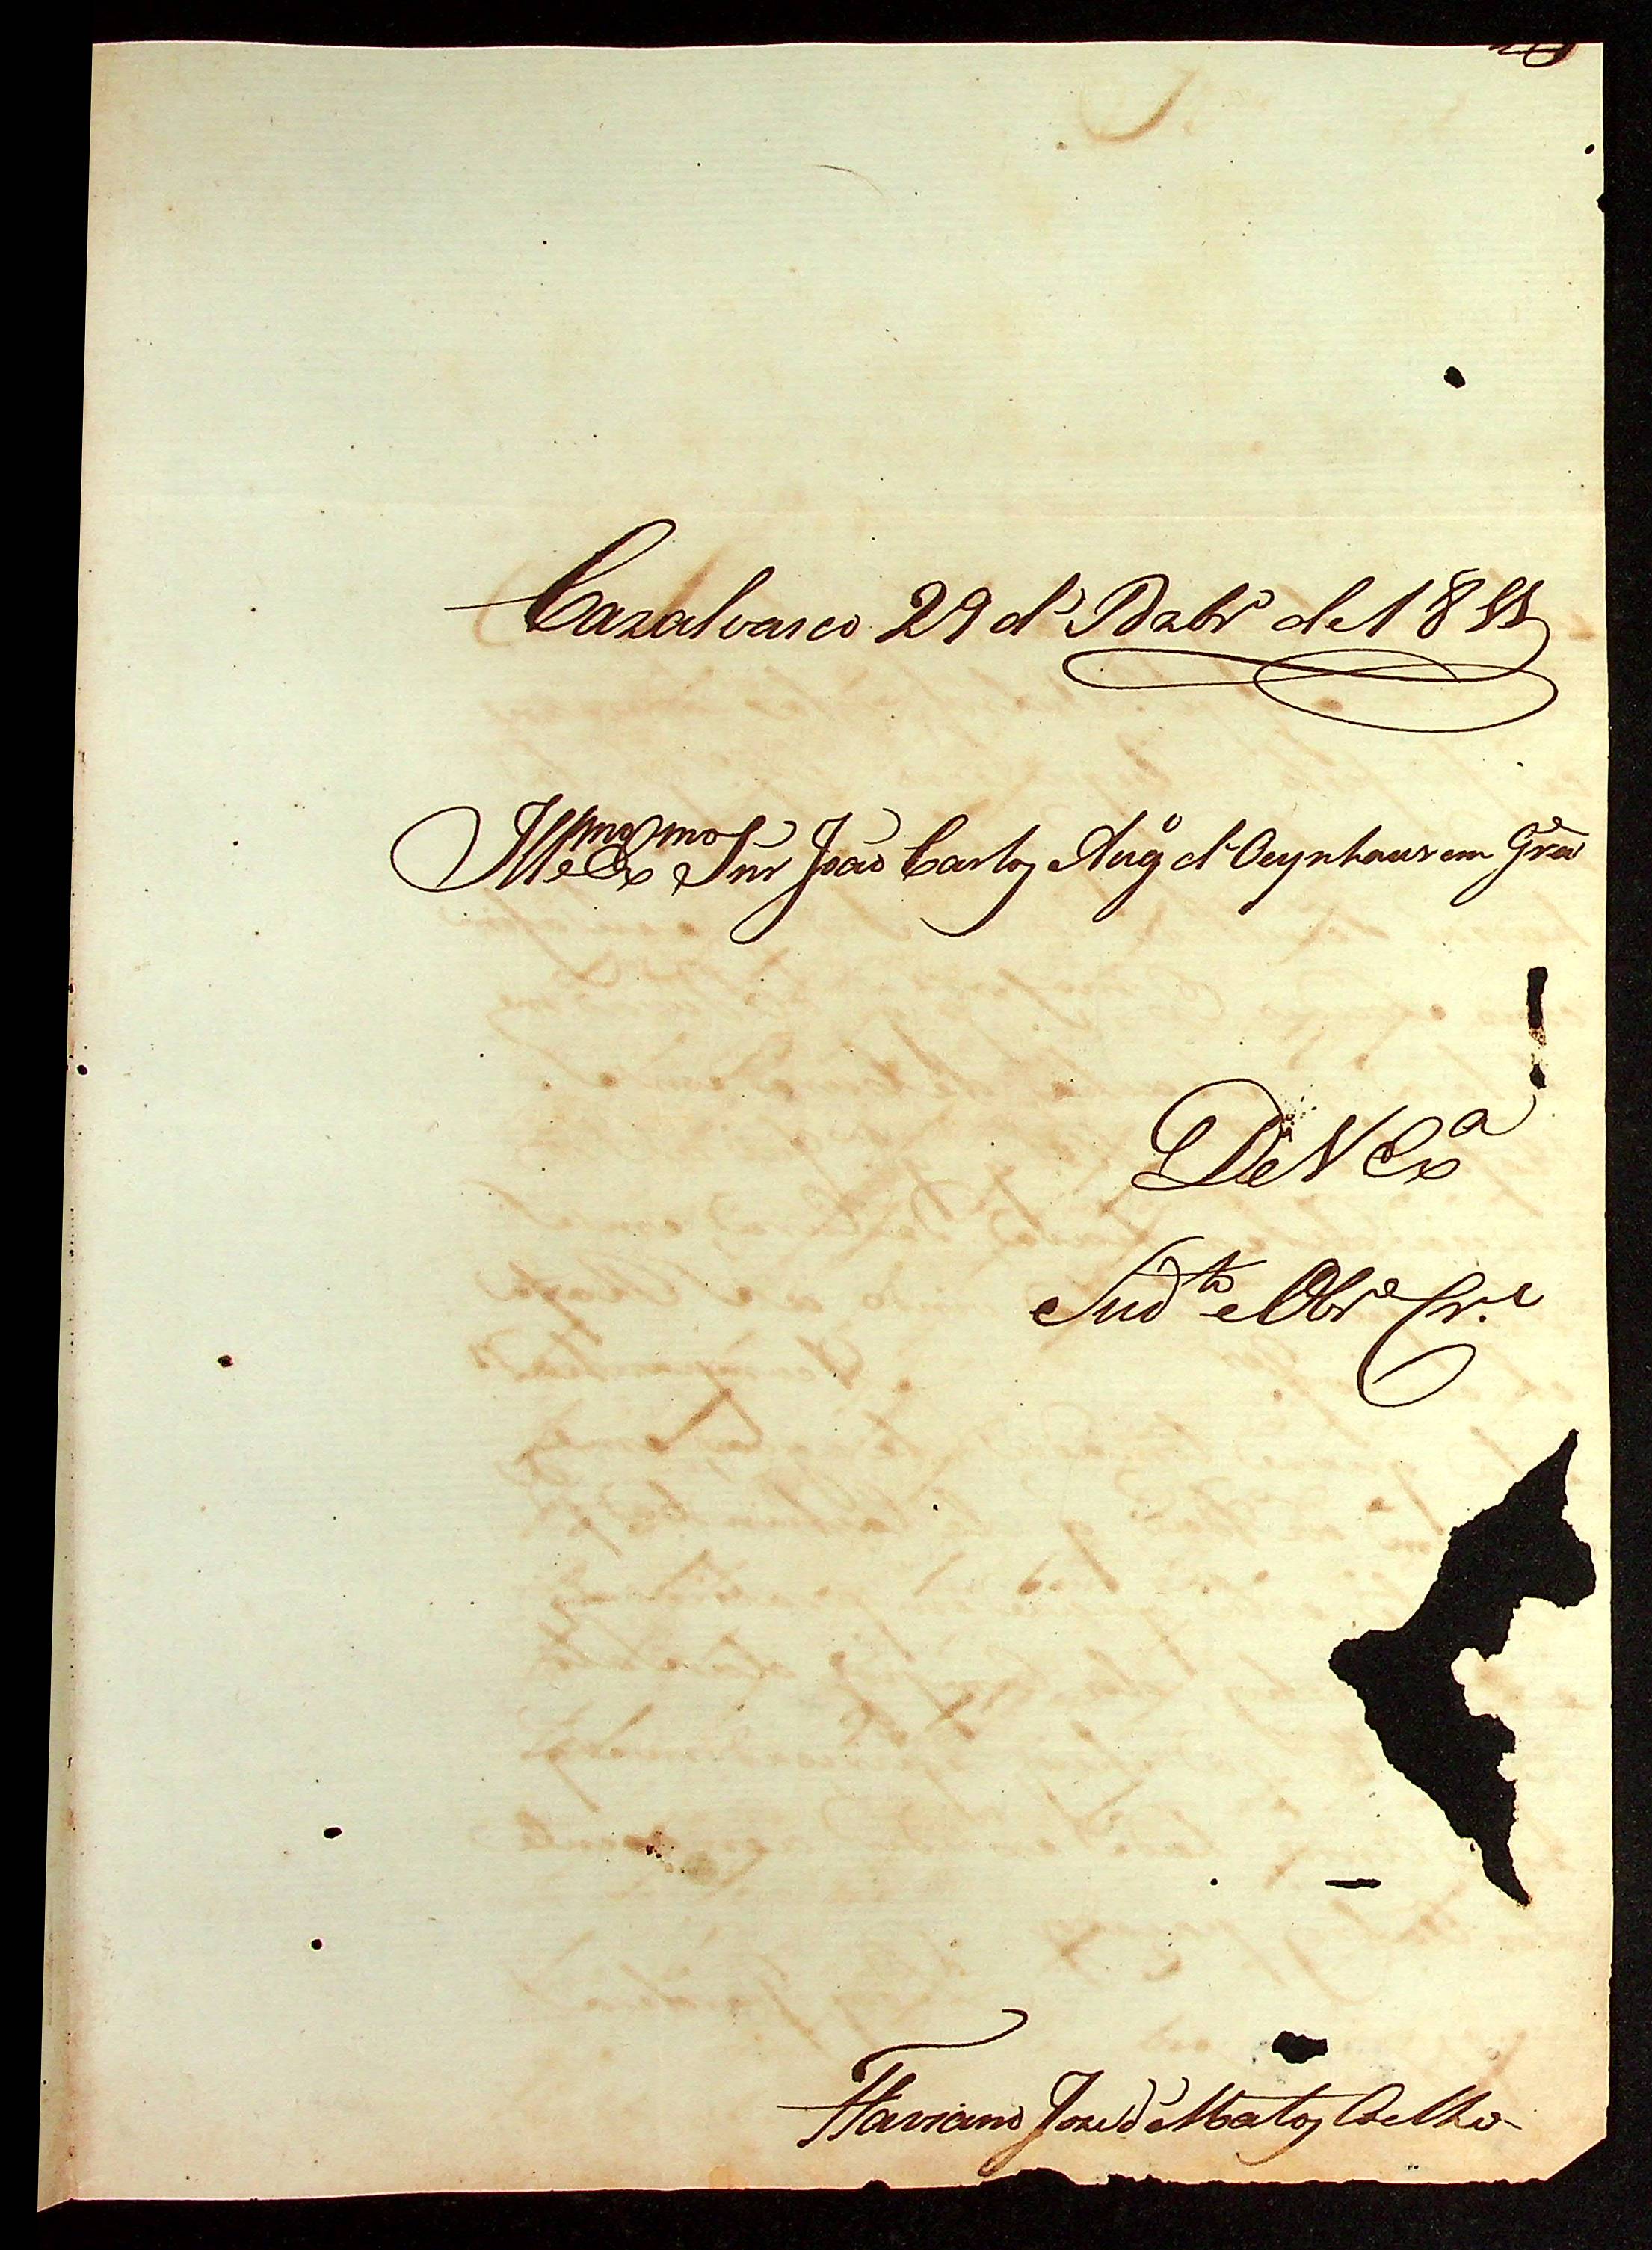 Cazalvasco 29 d' Dezbr.º de 1811
Ill.mo e Ex.mo Snr João Carlos Aug.º d' Oeynhausem Gra
De V Ex.a
Sud.to e Obr.e Cr.e
Flaviano Joze d' Mattos Coelho